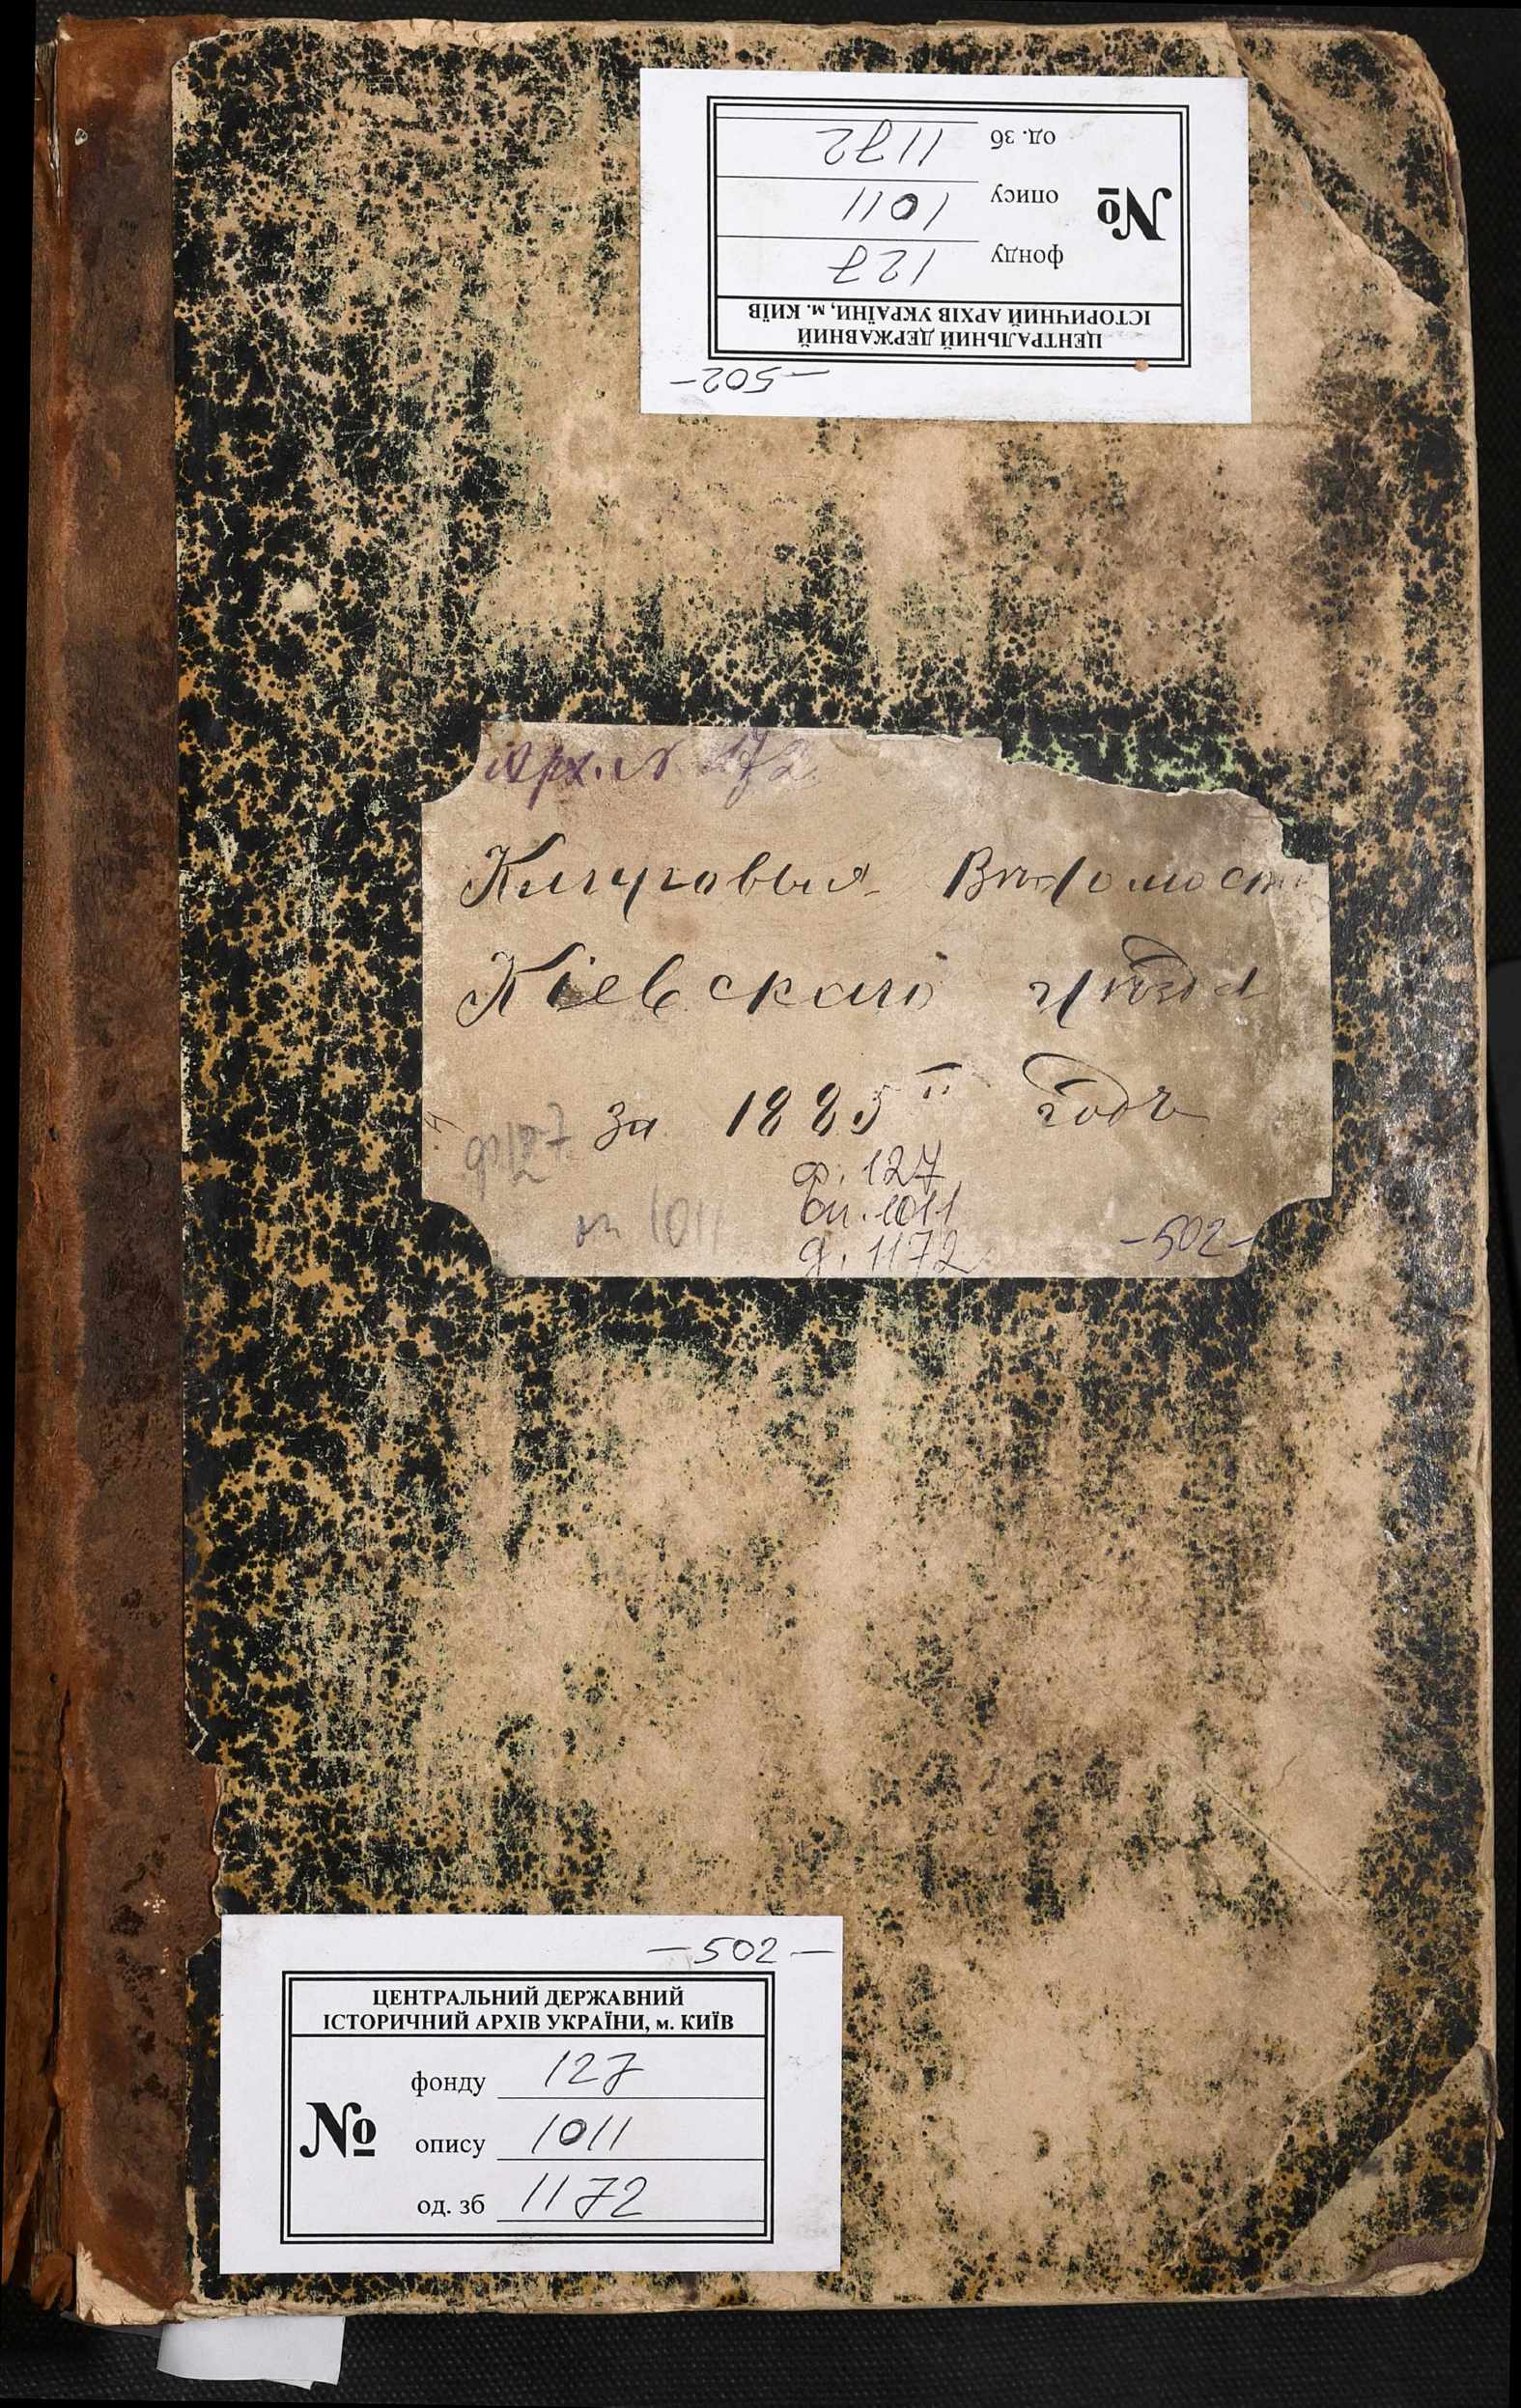 од. зб 1172
опису 1011
№
фонду 127
ЦЕНТРАЛЬНИЙ ДЕРЖАВНИЙ
ІСТОРИЧНИЙ АРХІВ УКРАЇНИ, м. КИЇВ
-502-
Арх. №
Клировыя Вѣдомост
Кіевскаго уѣзда
за 1885й годъ
ф 127
оп 1011
ф. 127
оп. 1011
д. 1172
-502-
-502-
ЦЕНТРАЛЬНИЙ ДЕРЖАВНИЙ
ІСТОРИЧНИЙ АРХІВ УКРАЇНИ, м. КИЇВ
фонду 127
№
опису 1011
од. зб 1172